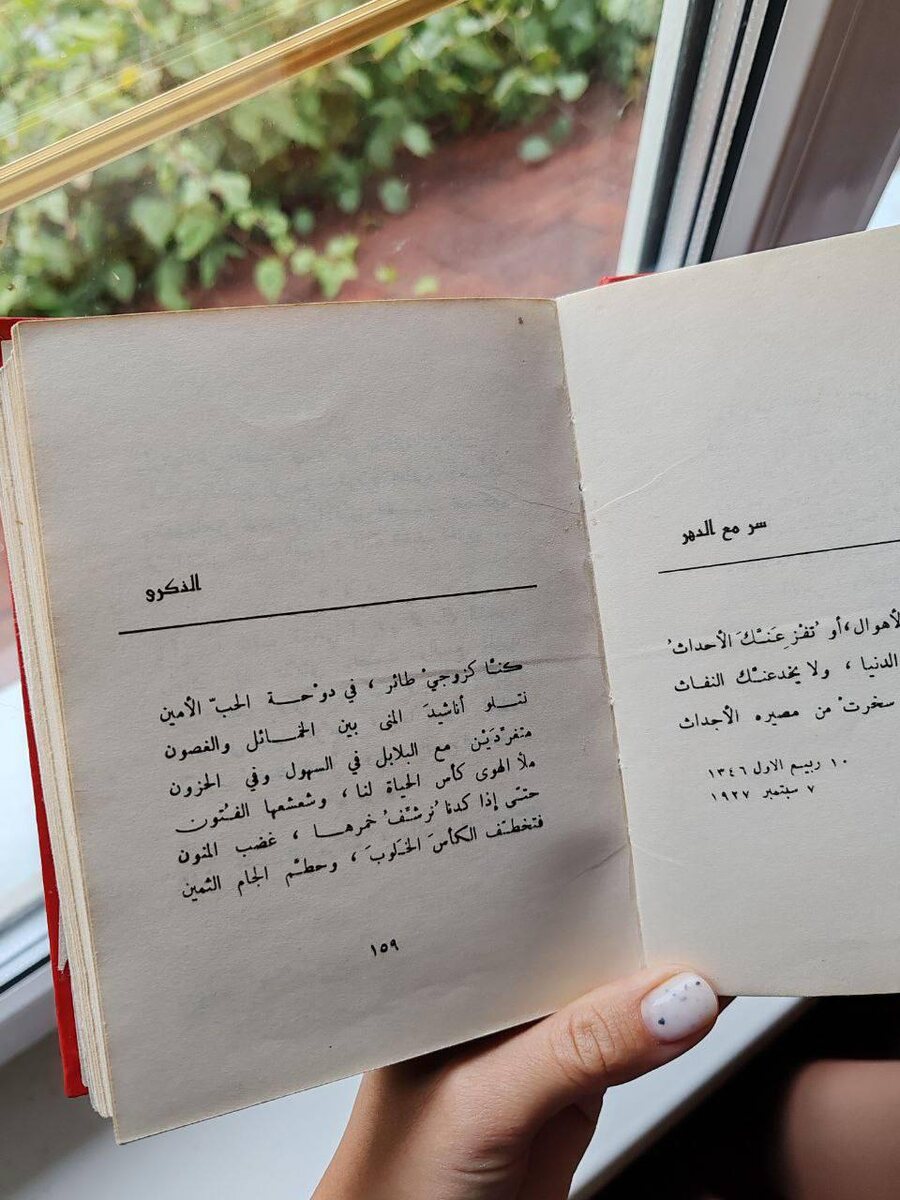 سر مع الدهر
الأهوال، أو تُفْزِعَنْكَ الأحداثُ
الدنيا ، ولا يخدعنْك النفاث
سخرتْ من مصيره الأجداث
١٠ ربيع الاول ١٣٤٦
٧ سبتمبر ١٩٢٧
الذكرى
كنّا كزوجيْ طائر ، في دوْحة الحبّ الأمين
نتلو أناشيدَ المنى بين الخمائل والغصون
متغرّدَيْن مع البلابل في السهول وفي الحزون
ملأ الهوى كأس الحياة لنا ، وشعشعها الفتون
حتى إذا كدنا نُرشّفُ خمرها ، غضب المنون
فتخطّف الكأسَ الخلوبَ ، وحطّم الجام الثمين
١٥٩